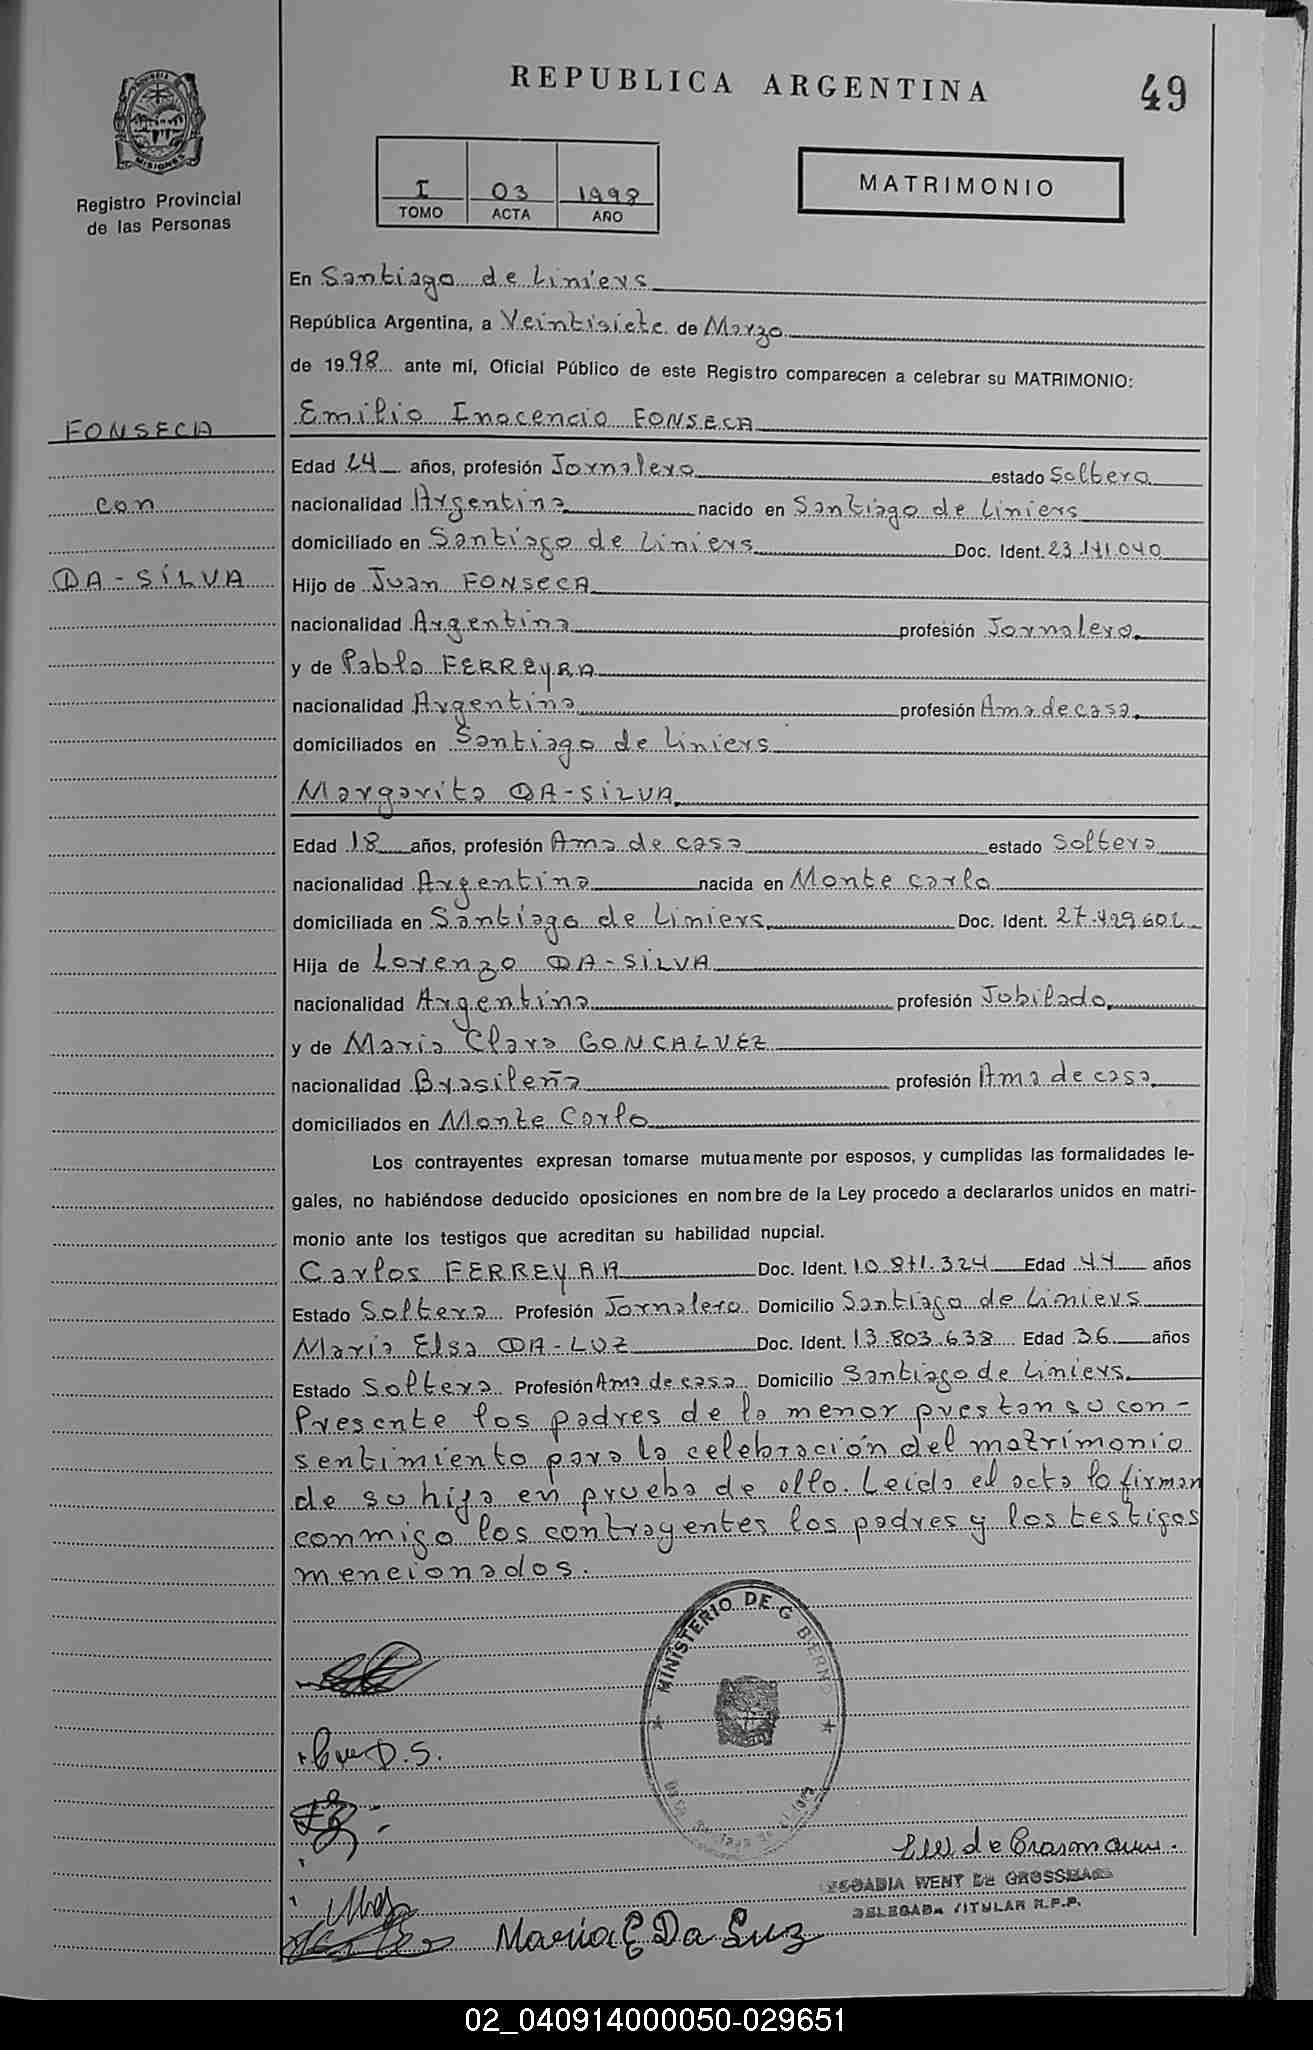 REPUBLICA ARGENTINA
49
MISIONES
Registro Provincial
de las Personas
I 03 1998
TOMO ACTA AÑO
MATRIMONIO
En Santiago de Liniers
República Argentina, a Veintisiete de Marzo
de 1998 ante mí, Oficial Público de este Registro comparecen a celebrar su MATRIMONIO:
FONSECA
con
DA-SILVA
Emilio Inocencio FONSECA
Edad 24 años, profesión Jornalero estado Soltero
nacionalidad Argentina nacido en Santiago de Liniers
domiciliado en Santiago de Liniers Doc. Ident. 23.141.040
Hijo de Juan FONSECA
nacionalidad Argentina profesión Jornalero.
y de Pabla FERREYRA
nacionalidad Argentina profesión Ama de casa.
domiciliados en Santiago de Liniers
Margarita DA-SILVA
Edad 18 años, profesión Ama de casa estado Soltera
nacionalidad Argentina nacida en Monte Carlo
domiciliada en Santiago de Liniers Doc. Ident. 27.429.602
Hija de Lorenzo DA-SILVA
nacionalidad Argentina profesión Jubilado
y de Maria Clara GONCALVEZ
nacionalidad Brasileña profesión Ama de casa
domiciliados en Monte Carlo
Los contrayentes expresan tomarse mutuamente por esposos, y cumplidas las formalidades le-
gales, no habiéndose deducido oposiciones en nombre de la Ley procedo a declararlos unidos en matri-
monio ante los testigos que acreditan su habilidad nupcial.
Carlos FERREYRA Doc. Ident. 10.871.324 Edad 44 años
Estado Soltero Profesión Jornalero Domicilio Santiago de Liniers
Maria Elsa DA-LUZ Doc. Ident. 13.803.638 Edad 36 años
Estado Soltera Profesión Ama de casa Domicilio Santiago de Liniers
Presente los padres de la menor prestan su con-
sentimiento para la celebración del matrimonio
de su hija en prueba de ello. Leida el acta la firman
conmigo los contrayentes los padres y los testigos
mencionados.
MINISTERIO DE G BIERNO
D.S.
Maria E Da Luz
WENT DE GROSSMANN
DELEGADA TITULAR R.P.P.
02_040914000050-029651